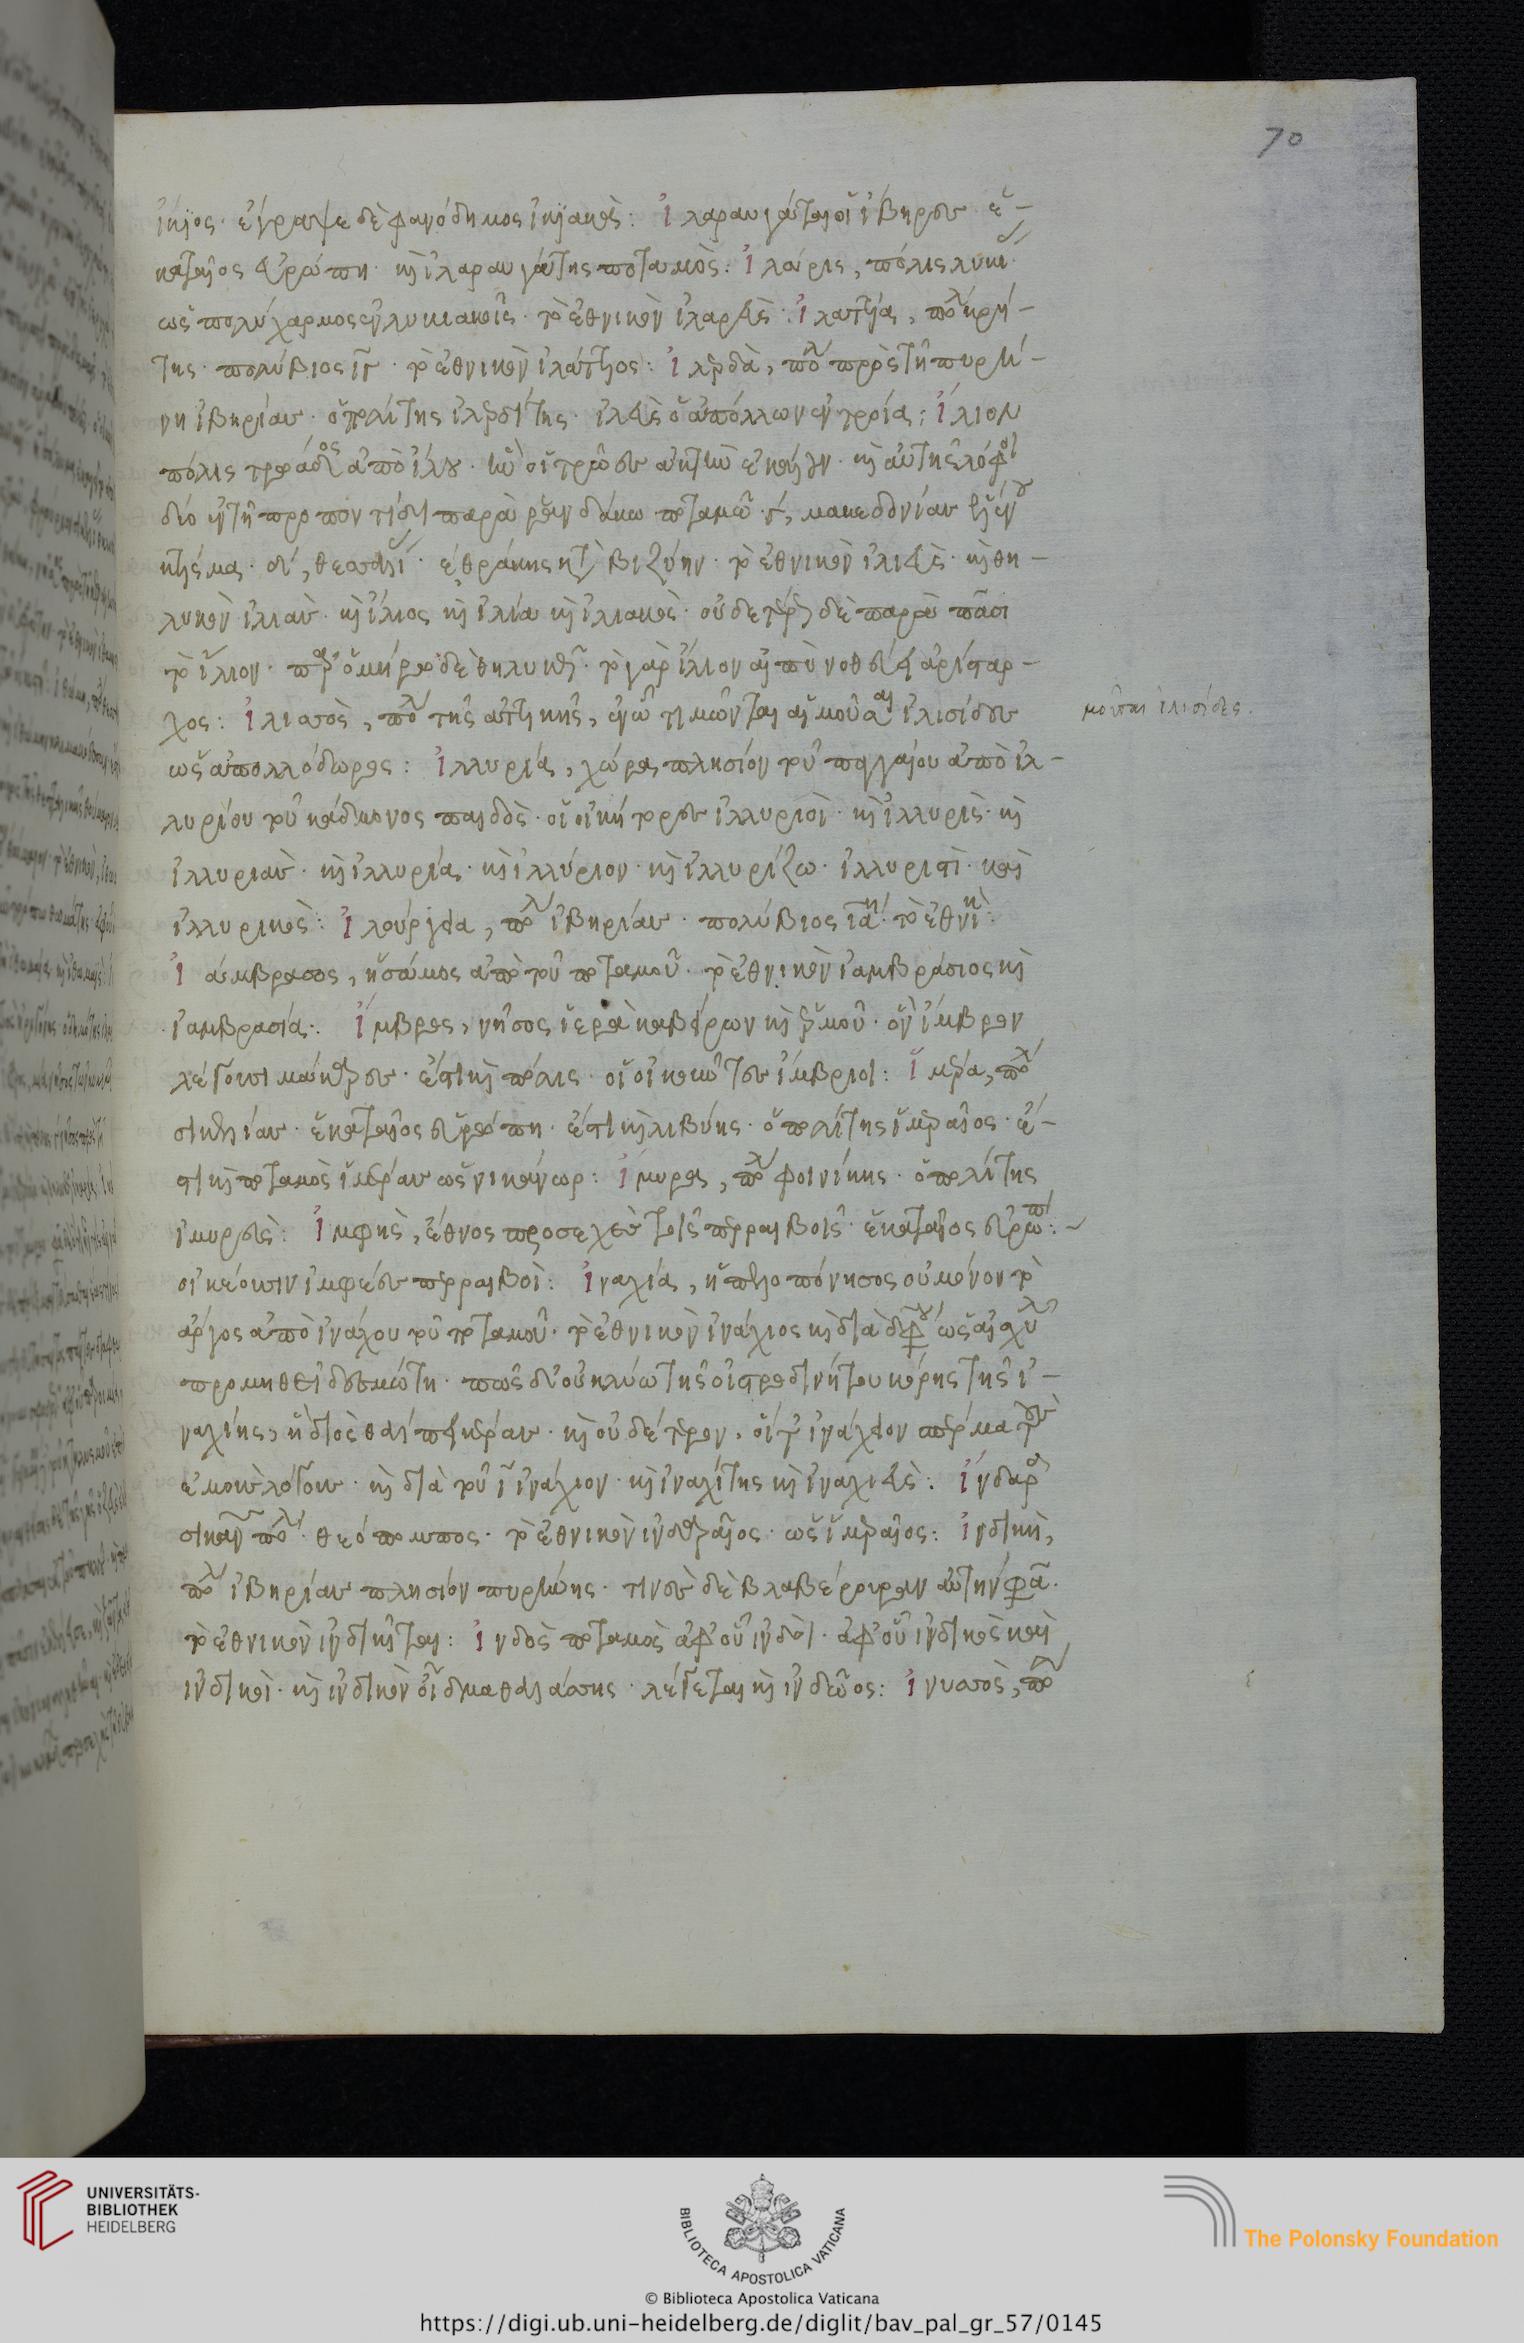 70
ἴκιος· ἔγραψε δὲ φανόδημος ἰκιακὸς: Ἰλαραυγάται οἱ ἴβηρες ἑ-
καταῖος εὐρώπη· καὶ ἰλαραυγάτης ποταμὸς: Ἰλάρις, πόλις λυκι
ὡς πολύχαρμος ἐν λυκιακοῖς· τὸ ἐθνικὸν ἰλαρεὺς· Ἰλαττία, πολ κρή-
της· πολύβιος ιγ· τὸ ἐθνικὸν ἰλάττιος: Ἰλερδὰ, πολ πρὸς τῆ πυρή-
νη ἰβηρίας· ὁ πολίτης ἰλερδίτης· ἰλεὺς ὁ ἀπόλλων ἐν τροία: Ἴλιον
πόλις τρωάδος ἀπὸ ἴλου· ἣν οἱ τρῶες
διὸ ἐν τῆ προποντίδι παρὰ ποταμῶ· γ, μακεδονίας
· δ, θεσσαλί· ε θράκης κατὰ βιζύην· τὸ ἐθνικὸν ἰλιεὺς· καὶ θη-
λυκὸν ἰλιὰς· καὶ ἴλιος καὶ ἰλία καὶ ἰλιακὸς· οὐδετέρως δὲ παρὰ πᾶσι
τὸ ἴλιον· παρ' ὁμήρω δὲ θηλυκῶς· τὸ γὰρ ἴλιον αἰπὺ νοθεύει ἀρίσταρ-
χος: Ἰλισσὸς, πολ τῆς ἀττικῆς, ἐν ὧ τιμῶνται αἱ μοῦσαι ἰλισίδες
μοῦσαι ἰλισίδες.
ὡς ἀπολλόδωρος: Ἰλλυρία, χώρα πλησίον τοῦ παγγαίου ἀπὸ ἰλ-
λυρίου τοῦ κάδμονος παιδὸς· οἱ οἰκήτορες ἰλλυριοὶ· καὶ ἰλλυρὶς· καὶ
ἰλλυριὰς· καὶ ἰλλυρία· καὶ ἰλλύριον· καὶ ἰλλυρίζω· ἰλλυριστὶ· καὶ
ἰλλυρικὸς: Ἰλούργεια, πολ ἰβηρίας· πολύβιος ια· τὸ ἐθνι:
Ἰάμβρασος, ἡ σάμος ἀπὸ τοῦ ποταμοῦ· τὸ ἐθνικὸν ἰαμβράσιος καὶ
ἰαμβρασία: Ἴμβρος, νῆσος ἱερὰ καβείρων καὶ ἑρμοῦ· ὃν ἴμβρον
λέγουσι μάκαρες· ἔστι καὶ πόλις· οἱ οἰκοῦντες ἴμβριοι: Ἱμέρα, πολ
σικελίας· ἑκαταῖος εὐρώπη· ἔστι καὶ λιβύης· ὁ πολίτης ἱμεραῖος· ἔ-
στι καὶ ποταμὸς ἱμέρας ὡς νικάνωρ: Ἴμυρα, πολ φοινίκης· ὁ πολίτης
ἰμυρεὺς: Ἰμφὴς, ἔθνος προσεχὲς τοῖς περραιβοῖς· ἑκαταῖος εὐρώπ:
οἰκέουσιν ἰμφέες περραιβοὶ: Ἰναχία, ἡ πελοπόνησος οὐ μόνον τὸ
ἄργος ἀπὸ ἰνάχου τοῦ ποταμοῦ· τὸ ἐθνικὸν ἰνάχιος καὶ διὰ διφ ὡς αἰσχύλ
προμηθεῖ δεσμώτη· πῶς δ' οὐ κλύω τῆς οἰστροδινήτου κόρης τῆς ἰ-
ναχίης, ἡ διὸς θάλπει κέαρ· καὶ οὐδέτερον, ἰνάχειον σπέρμα
ἐμοὶ λόγων· καὶ διὰ τοῦ ι ἰνάχιον· καὶ ἰναχίτης καὶ ἰναχιεὺς: Ἴνδαρ
σικανῶν πολ· θεόπομπος· τὸ ἐθνικὸν ἰνδαραῖος· ὡς ἱμεραῖος: Ἰνδικὴ,
πολ ἰβηρίας πλησίον πυρήνης· τινὲς δὲ βλαβέρουραν αὐτήν φα·
τὸ ἐθνικὸν ἰνδικῆται: Ἰνδὸς ποταμὸς ἀφ' οὗ ἰνδοὶ· ἀφ' οὗ ἰνδικὸς καὶ
ἰνδικὴ· καὶ ἰνδικὸν οἶδμα θαλάσσης· λέγεται καὶ ἰνδῶος: Ἰνυσσὸς, πολ
UNIVERSITÄTS-
BIBLIOTHEK
HEIDELBERG
BIBLIOTECA APOSTOLICA VATICANA
The Polonsky Foundation
© Biblioteca Apostolica Vaticana
https://digi.ub.uni-heidelberg.de/diglit/bav_pal_gr_57/0145